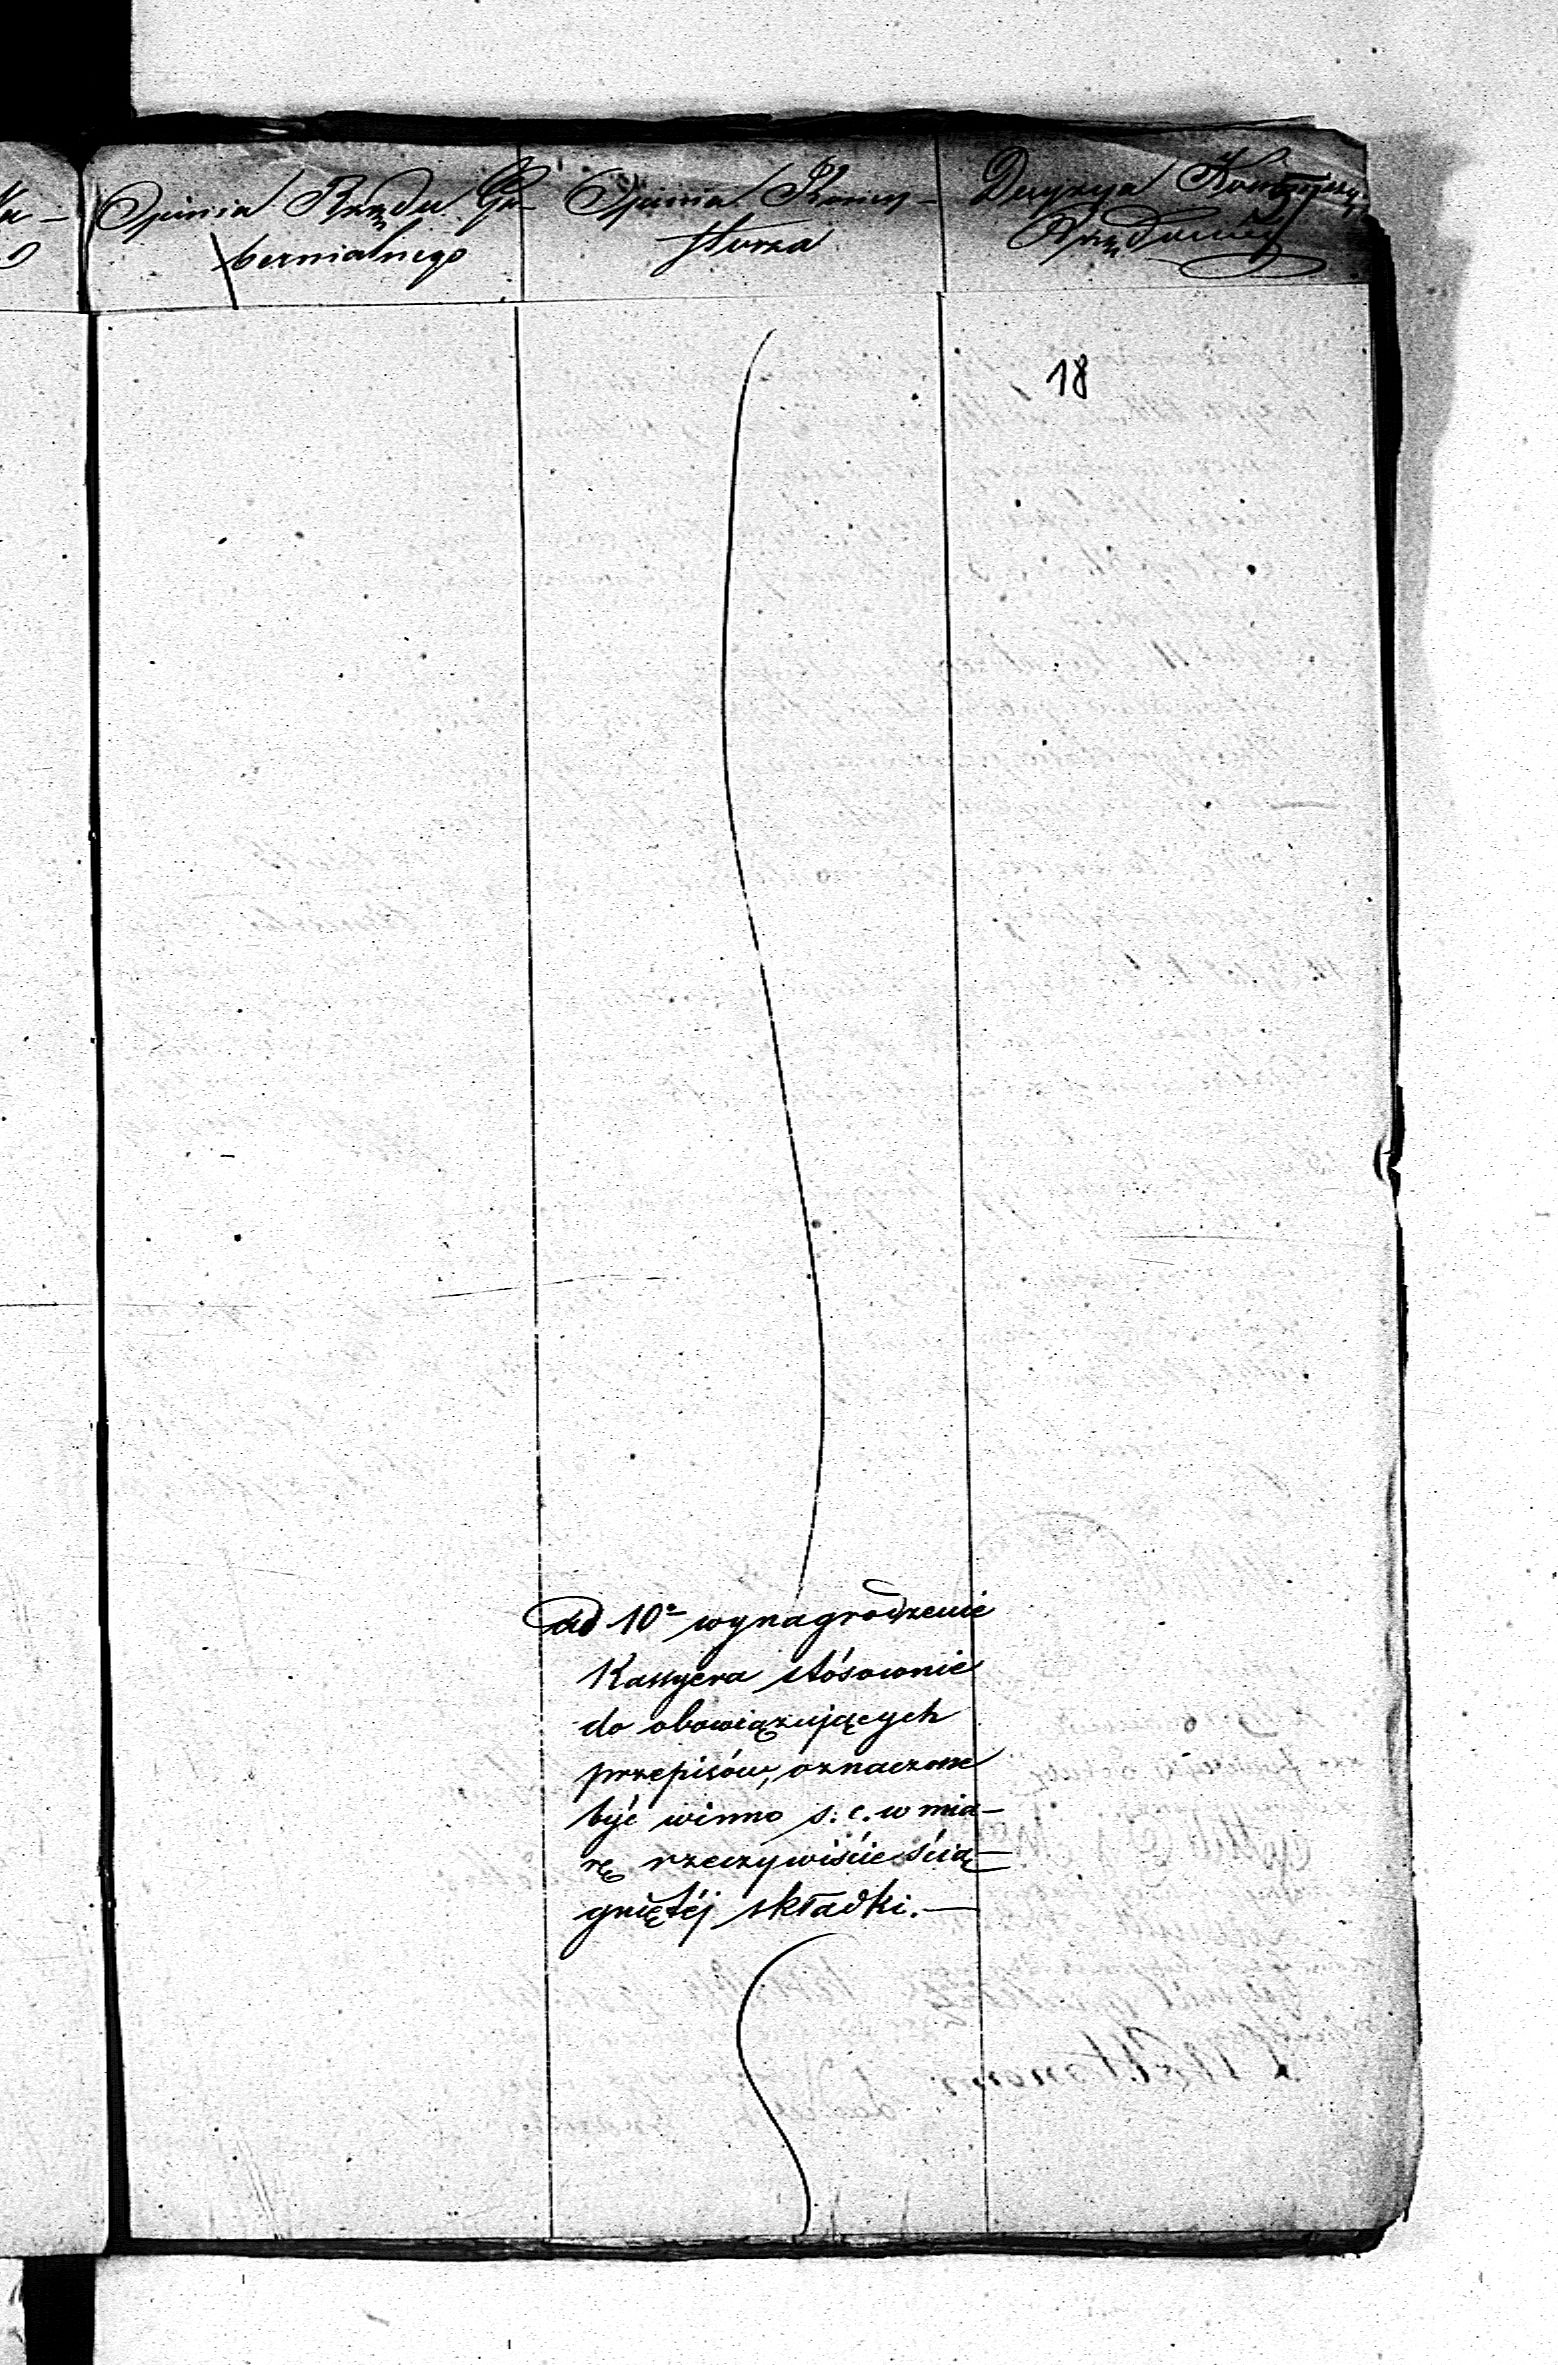 Opinia Rządu Gu-
bernialnego
Opinia Konsy-
storza
Decyzya Kommissyi
Rządowéj
18
ad 10° wynagrodzenie
Kassyera stósownie
do obowiązujących
przepisów, oznaczone
być winno s. c. w mia-
rę rzeczywiście ścią-
gniętéj składki. —